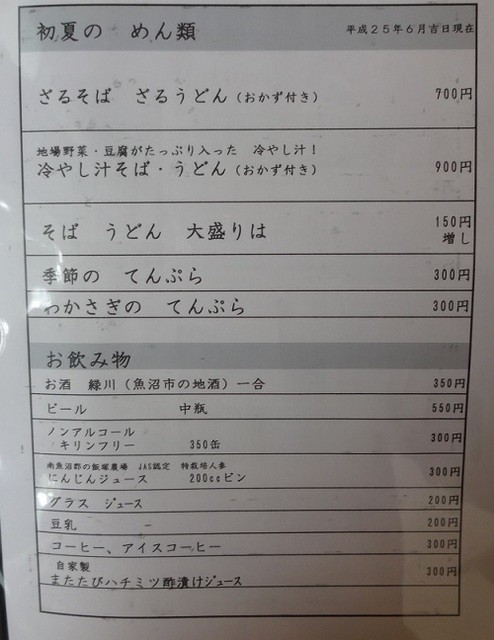 初夏の めん類 平成25年6月吉日現在
ざるそば ざるうどん(おかず付き) 700円
地場野菜・豆腐がたっぷり入った 冷やし汁!
冷やし汁そば・うどん(おかず付き) 900円
そば うどん 大盛りは 150円
増し
季節の てんぷら 300円
わかさぎの てんぷら 300円
お飲み物
お酒 緑川(魚沼市の地酒)一合 350円
ビール 中瓶 550円
ノンアルコール
・キリンフリー 350缶 300円
南魚沼郡の飯塚農場 JAS認定 特栽培人参
にんじんジュース 200ccビン 300円
グラス ジュース 200円
豆乳 200円
コーヒー、アイスコーヒー 300円
自家製
またたびハチミツ酢漬けジュース 300円